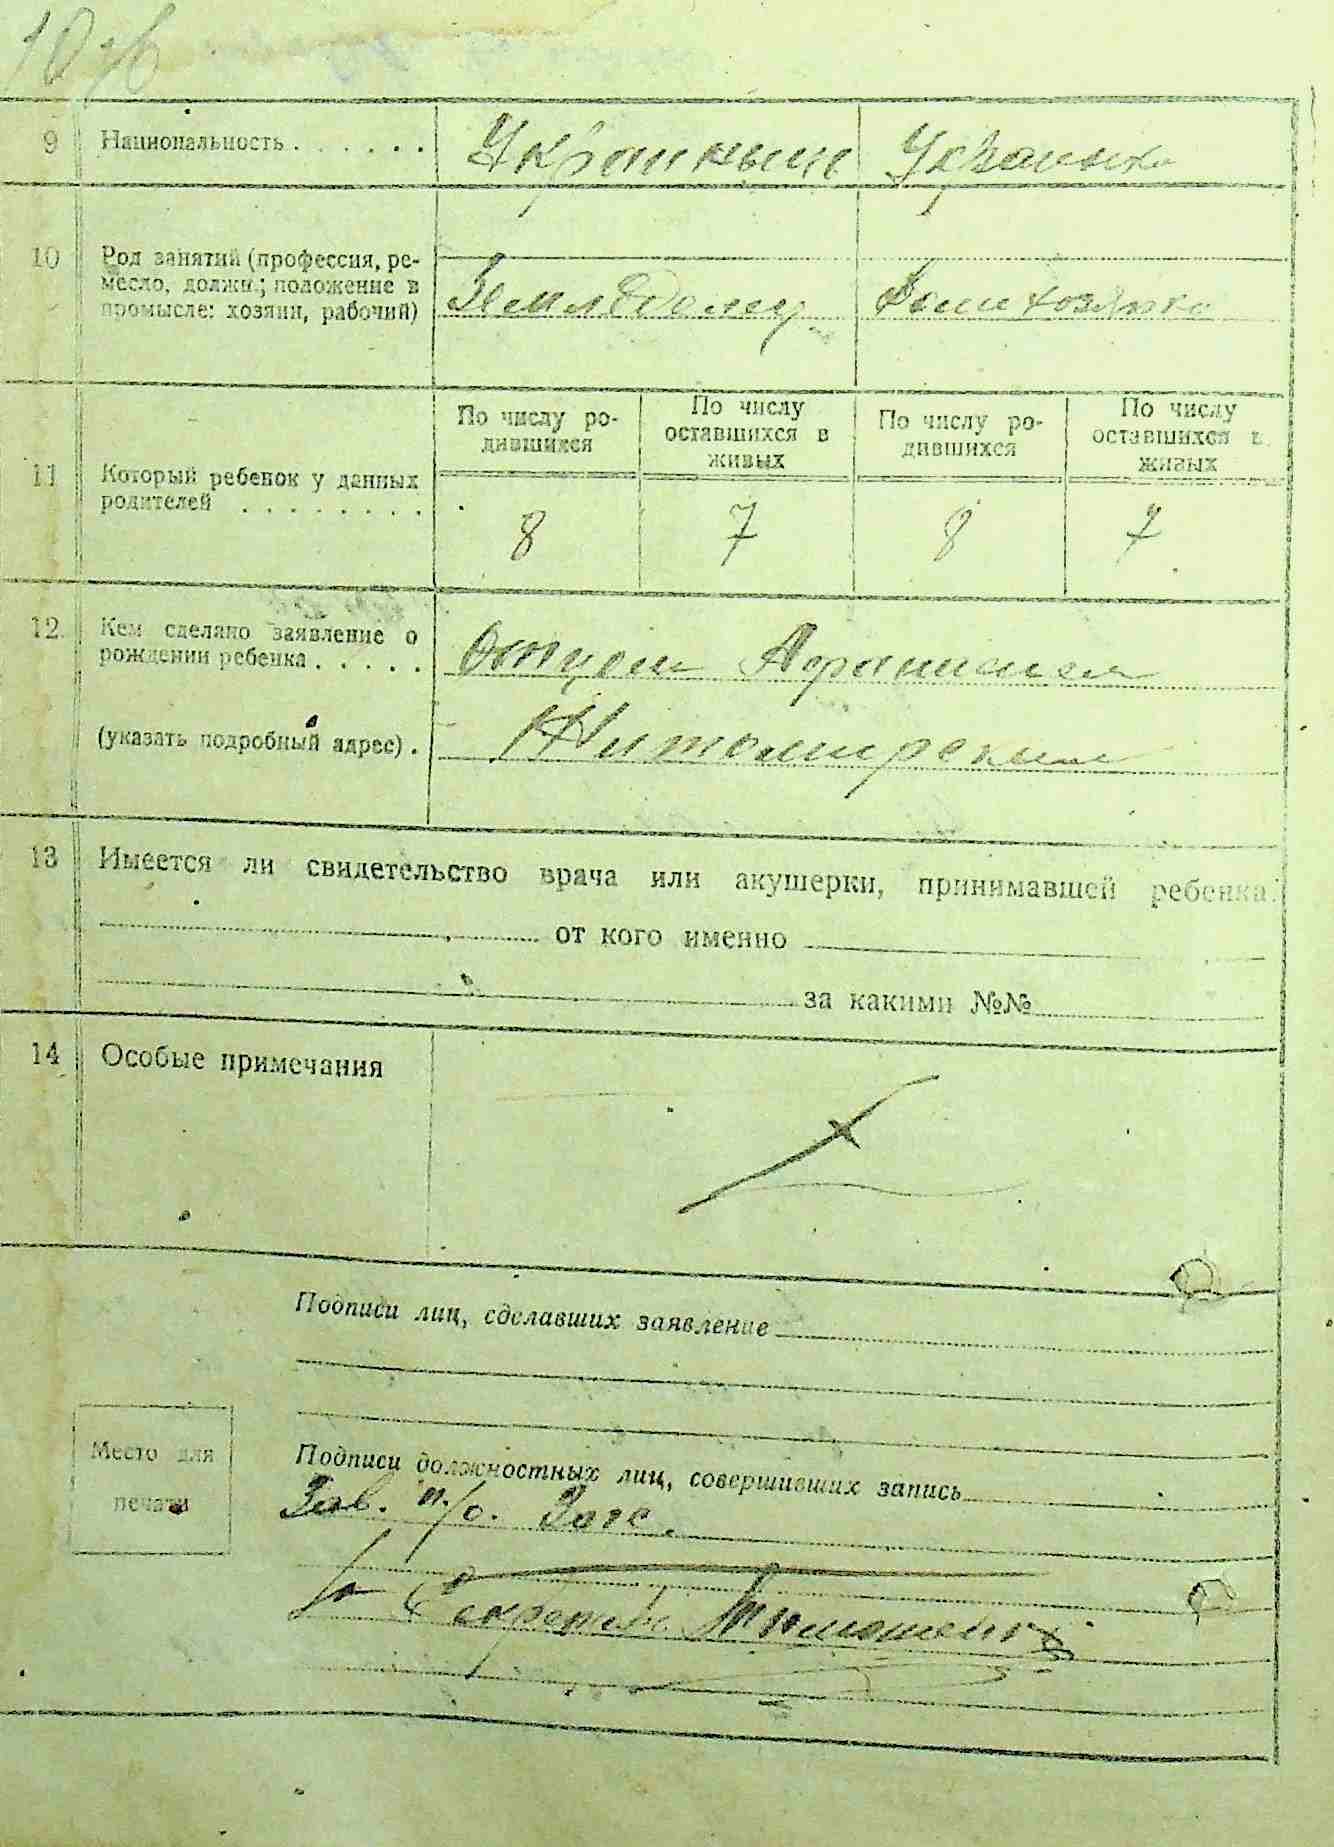 10 зв
9 Национальность . . . . . . Украинець Украинка
10 Род занятий (профессия, ре-
месло, должн.; положение в
промысле: хозяин, рабочий)
Домохозяйка
По числу ро-
дившихся
По числу
оставшихся в
живых
По числу ро-
дившихся
По числу
оставшихся в
живых
11 Который ребенок у данных
родителей . . . . . . . .
8 7 8 7
12 Кем сделано заявление о
рождении ребенка . . . . . Отцом
(указать подробный адрес) . Житомирским
13 Имеется ли свидетельство врача или акушерки, принимавшей ребенка.
от кого именно
за какими №№
14 Особые примечания
Подписи лиц, сделавших заявление
Место для
печати
Подписи должностных лиц, совершивших запись
Зав. п/о. Загс.
Секретарь Тимошенко